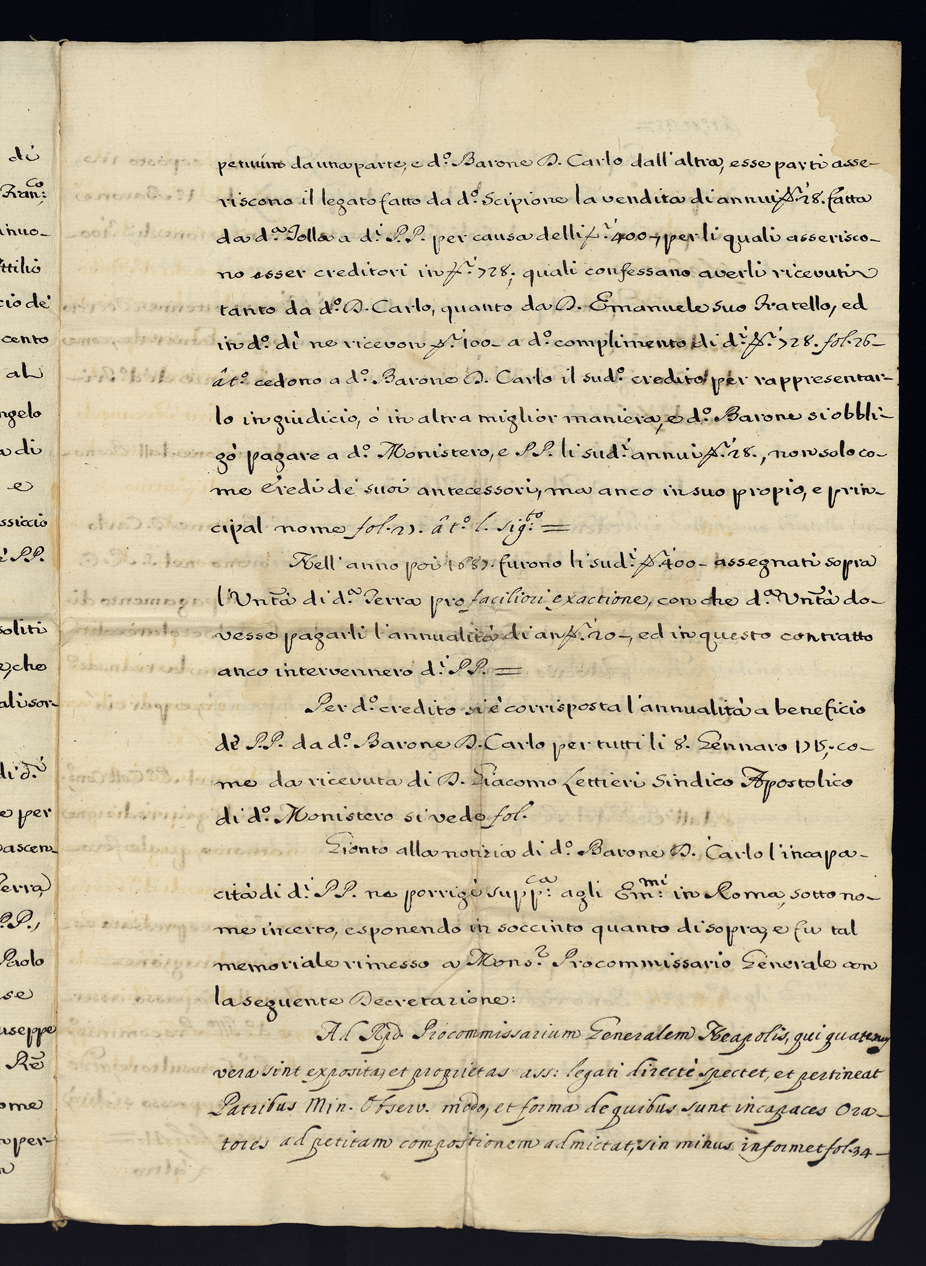 di
Fran:co
nnuo-
Attilio
cio de
cento
al
ngelo
a di
e
ssiccio
è P.P.
soliti
che
ali sor-
di d.i
e per
ascen-
Terra
P.P.,
Paolo
se
useppe
Re
ome
per-
petuum da una parte, e d.o Barone D. Carlo dall'altra, esse parti asse-
riscono il legato fatto da d.o Scipione la vendita di annui 28. fatta
da d.a Jolla a d.i P.P. per causa delli 400 - per li quali asserisco-
no esser creditori in 728; quali confessano averli ricevuti
tanto da d.o D. Carlo, quanto da D. Emanuele suo Fratello, ed
in d.o dì ne ricevon 100 - a d.o complimento di d.i 728. fol. 26 -
à t.o cedono a d.o Barone D. Carlo il sud.o credito per rappresentar-
lo in giudicio, ó in altra miglior maniera, e d.o Barone si obbli-
gò pagare a d.o Monistero, e P.P. li sud.i annui 28., non solo co-
me Eredi de' suoi antecessori, ma anco in suo propio, e prin-
cipal nome fol. 27. à t.o l. sig.to =
Nell'anno poi 1687. furono li sud.i 400 - assegnati sopra
l'Un.tà di d.a Terra pro faciliori exactione, con che d.a Un.tà do-
vesse pagarli l'annualità di an 20 -, ed in questo contratto
anco intervennero d.i P.P. =
Per d.o credito si è corrisposta l'annualità a beneficio
de P.P. da d.o Barone D. Carlo per tutti li 8. Gennaro 1715; co-
me da ricevuta di D. Giacomo Lettieri Sindico Apostolico
di d.o Monistero si vede fol.
Gionto alla notizia di d.o Barone D. Carlo l'incapa-
cità di d.i P.P. ne porrigè supp:ca agli Em:mi in Roma, sotto no-
me incerto, esponendo in soccinto quanto di sopra, e fu tal
memoriale rimesso a Mons.r Procommissario Generale con
la seguente Decretazione:
Ad Rpd. Procommissarium Generalem Neapolis, qui quatenus
vera sint exposita, et proprietas ass: legati directè spectet, et pertineat
Patribus Min. Observ. modo, et forma de quibus sunt incapaces Ora-
tores ad petitam compositionem admictat, sin minus informet fol. 34 -